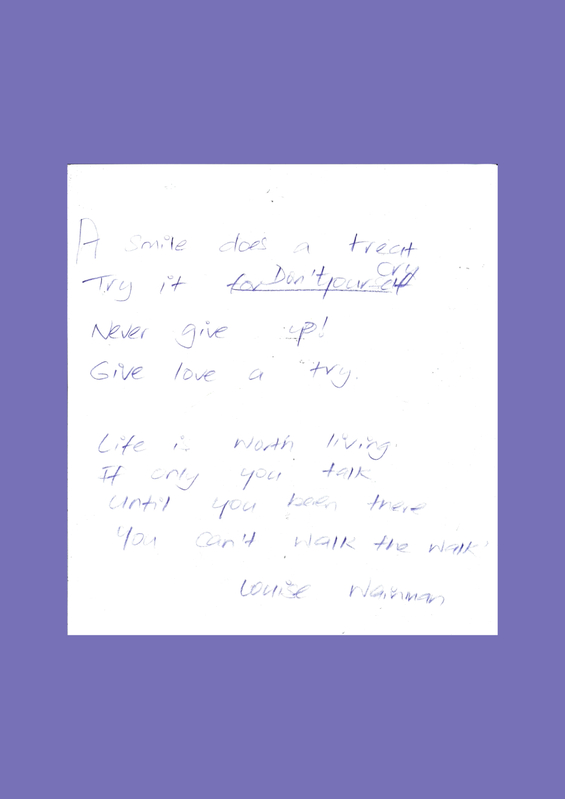 A smile does a treat
Try it for yourself Don't cry
Never give up!
Give love a try.
Life is worth living.
If only you talk
Until you been there
You can't walk the walk'
Louise Wainman